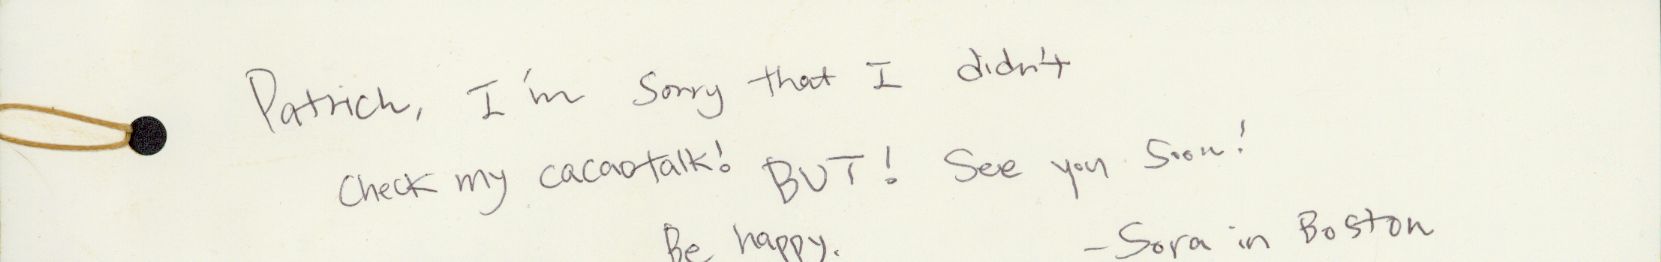 Patrich, I'm Sorry that I didn't
check my cacaotalk! BUT! See you Soon!
Be happy.
- Sora in Boston